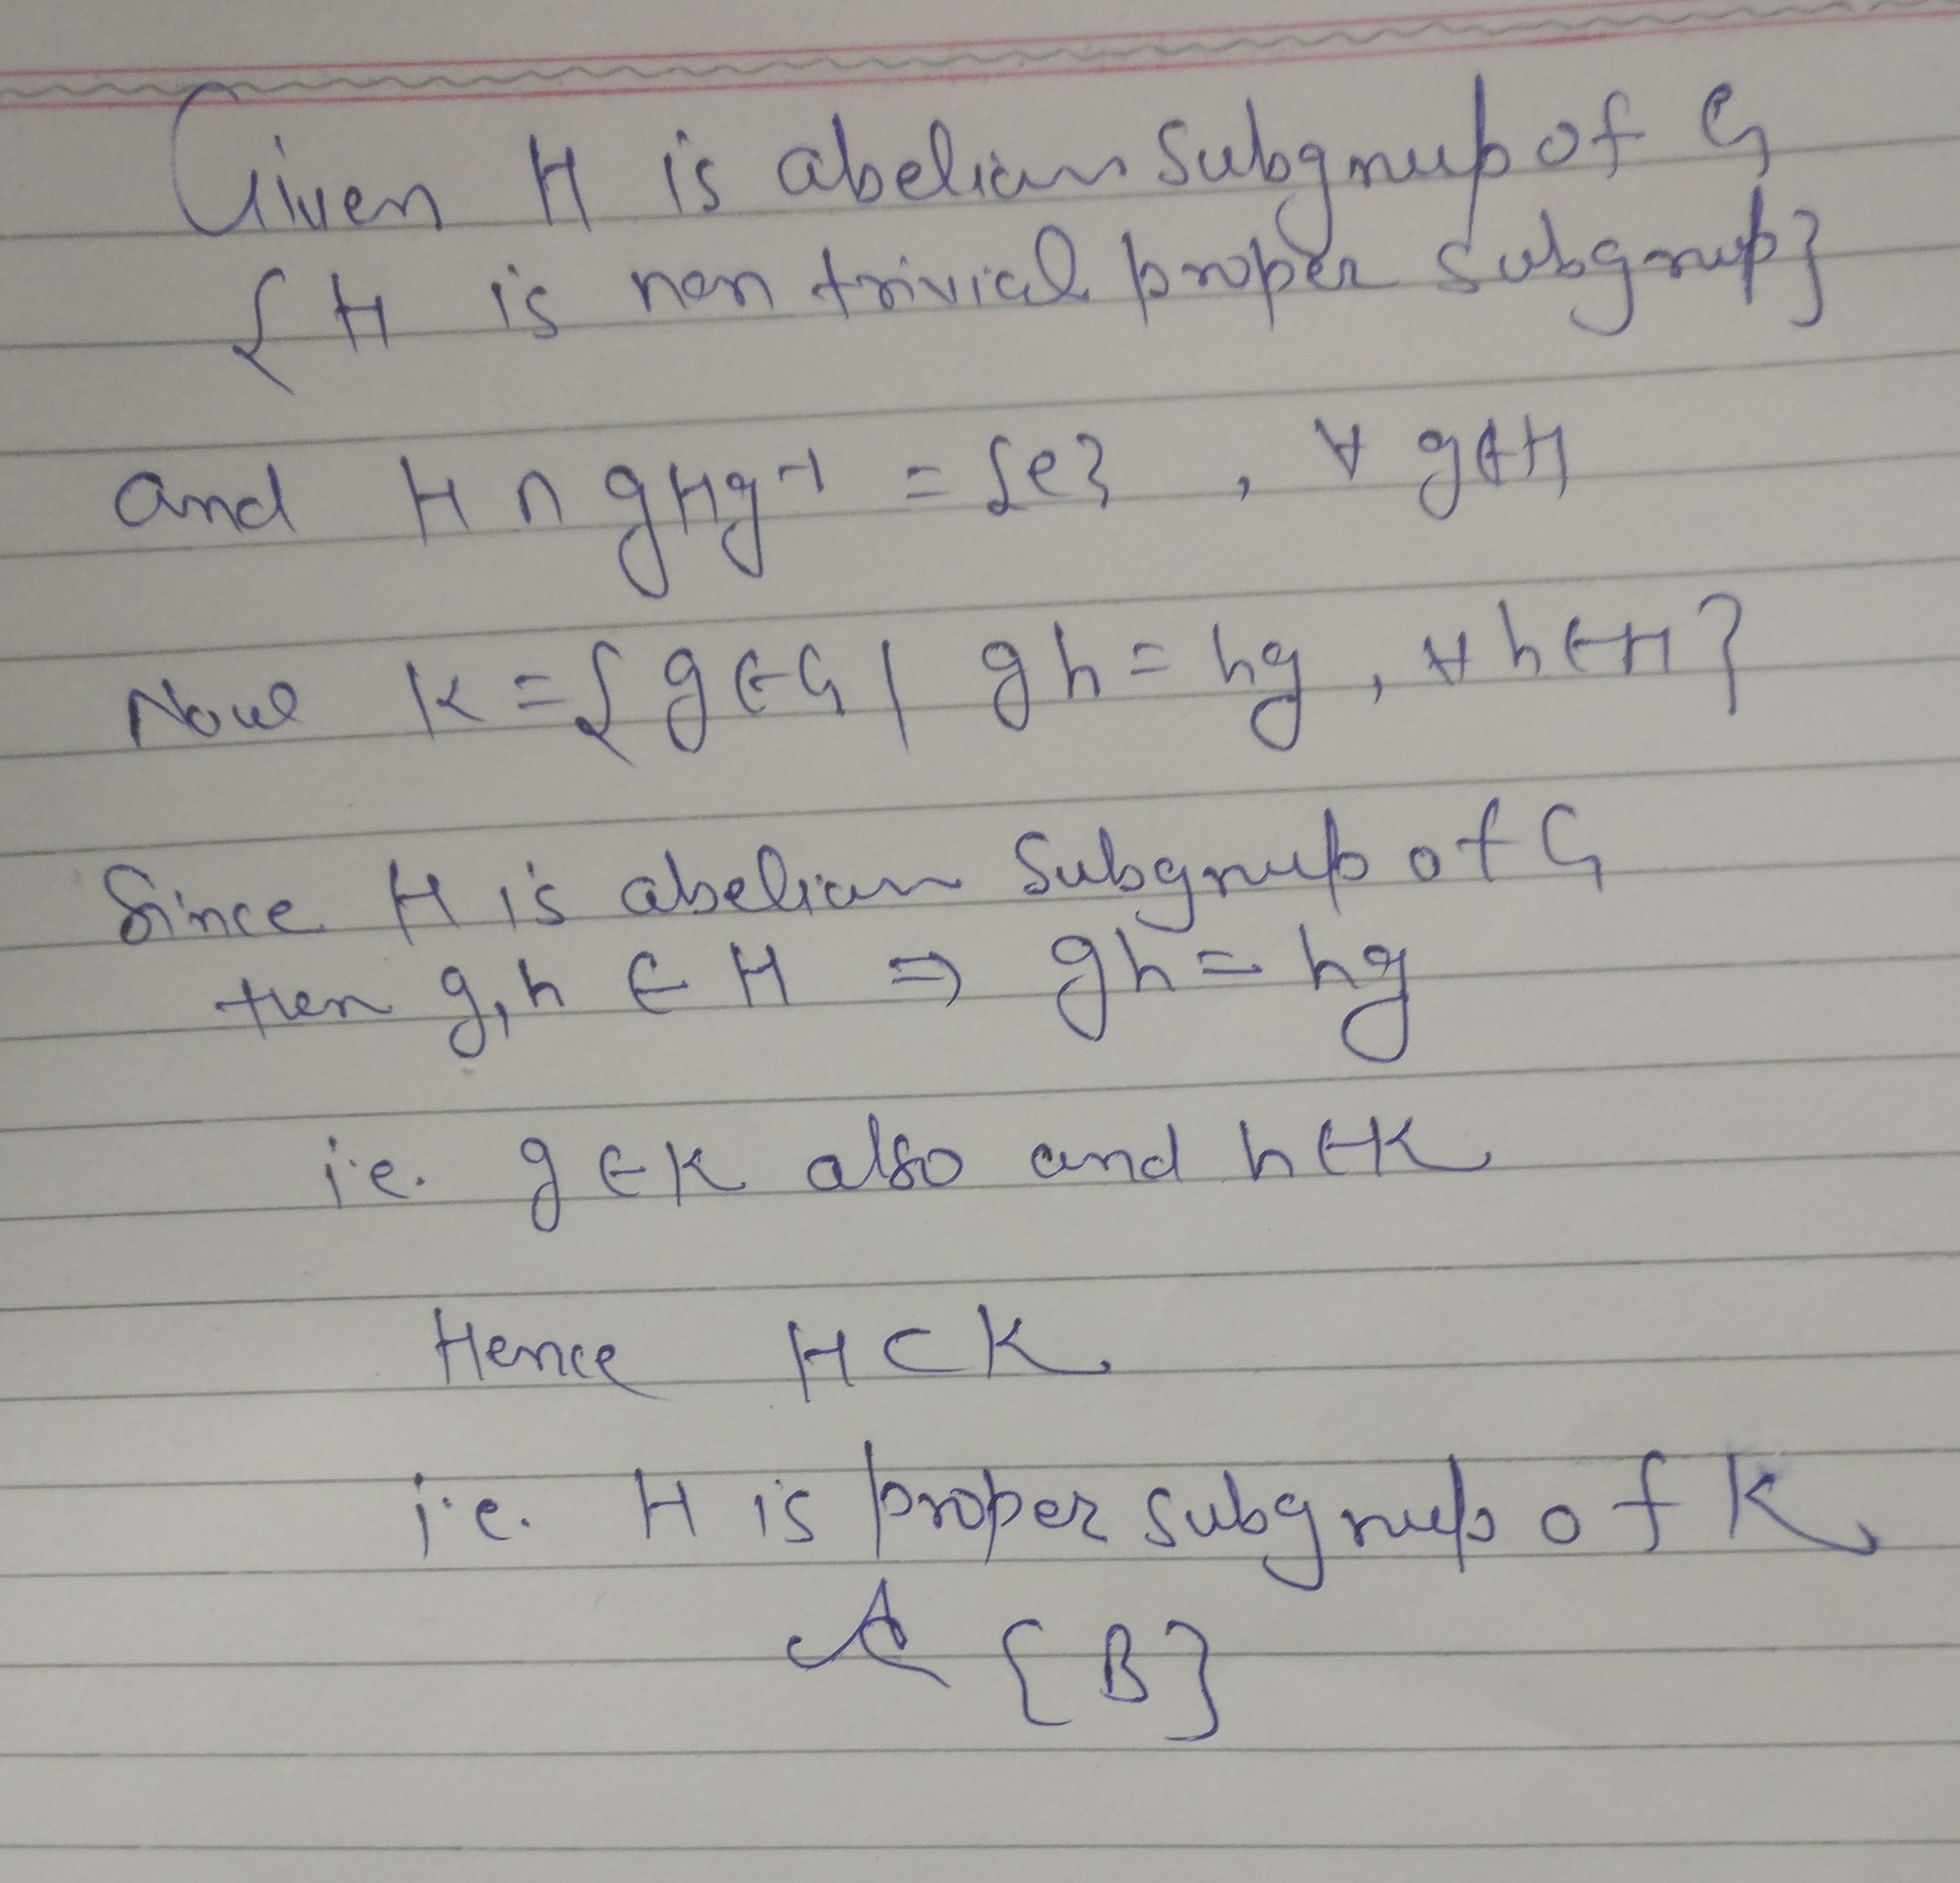 Given H is abelian subgroup of G
{H is non trivial proper subgroup}
and H ∩ gHg⁻¹ = {e} , ∀ g∉H
Now K = {g∈G | gh = hg , ∀ h∈H}
Since H is abelian subgroup of G
then g,h ∈ H ⇒ gh = hg
i.e. g∈K also and h∈K
Hence H⊂K
i.e. H is proper subgroup of K
{B}